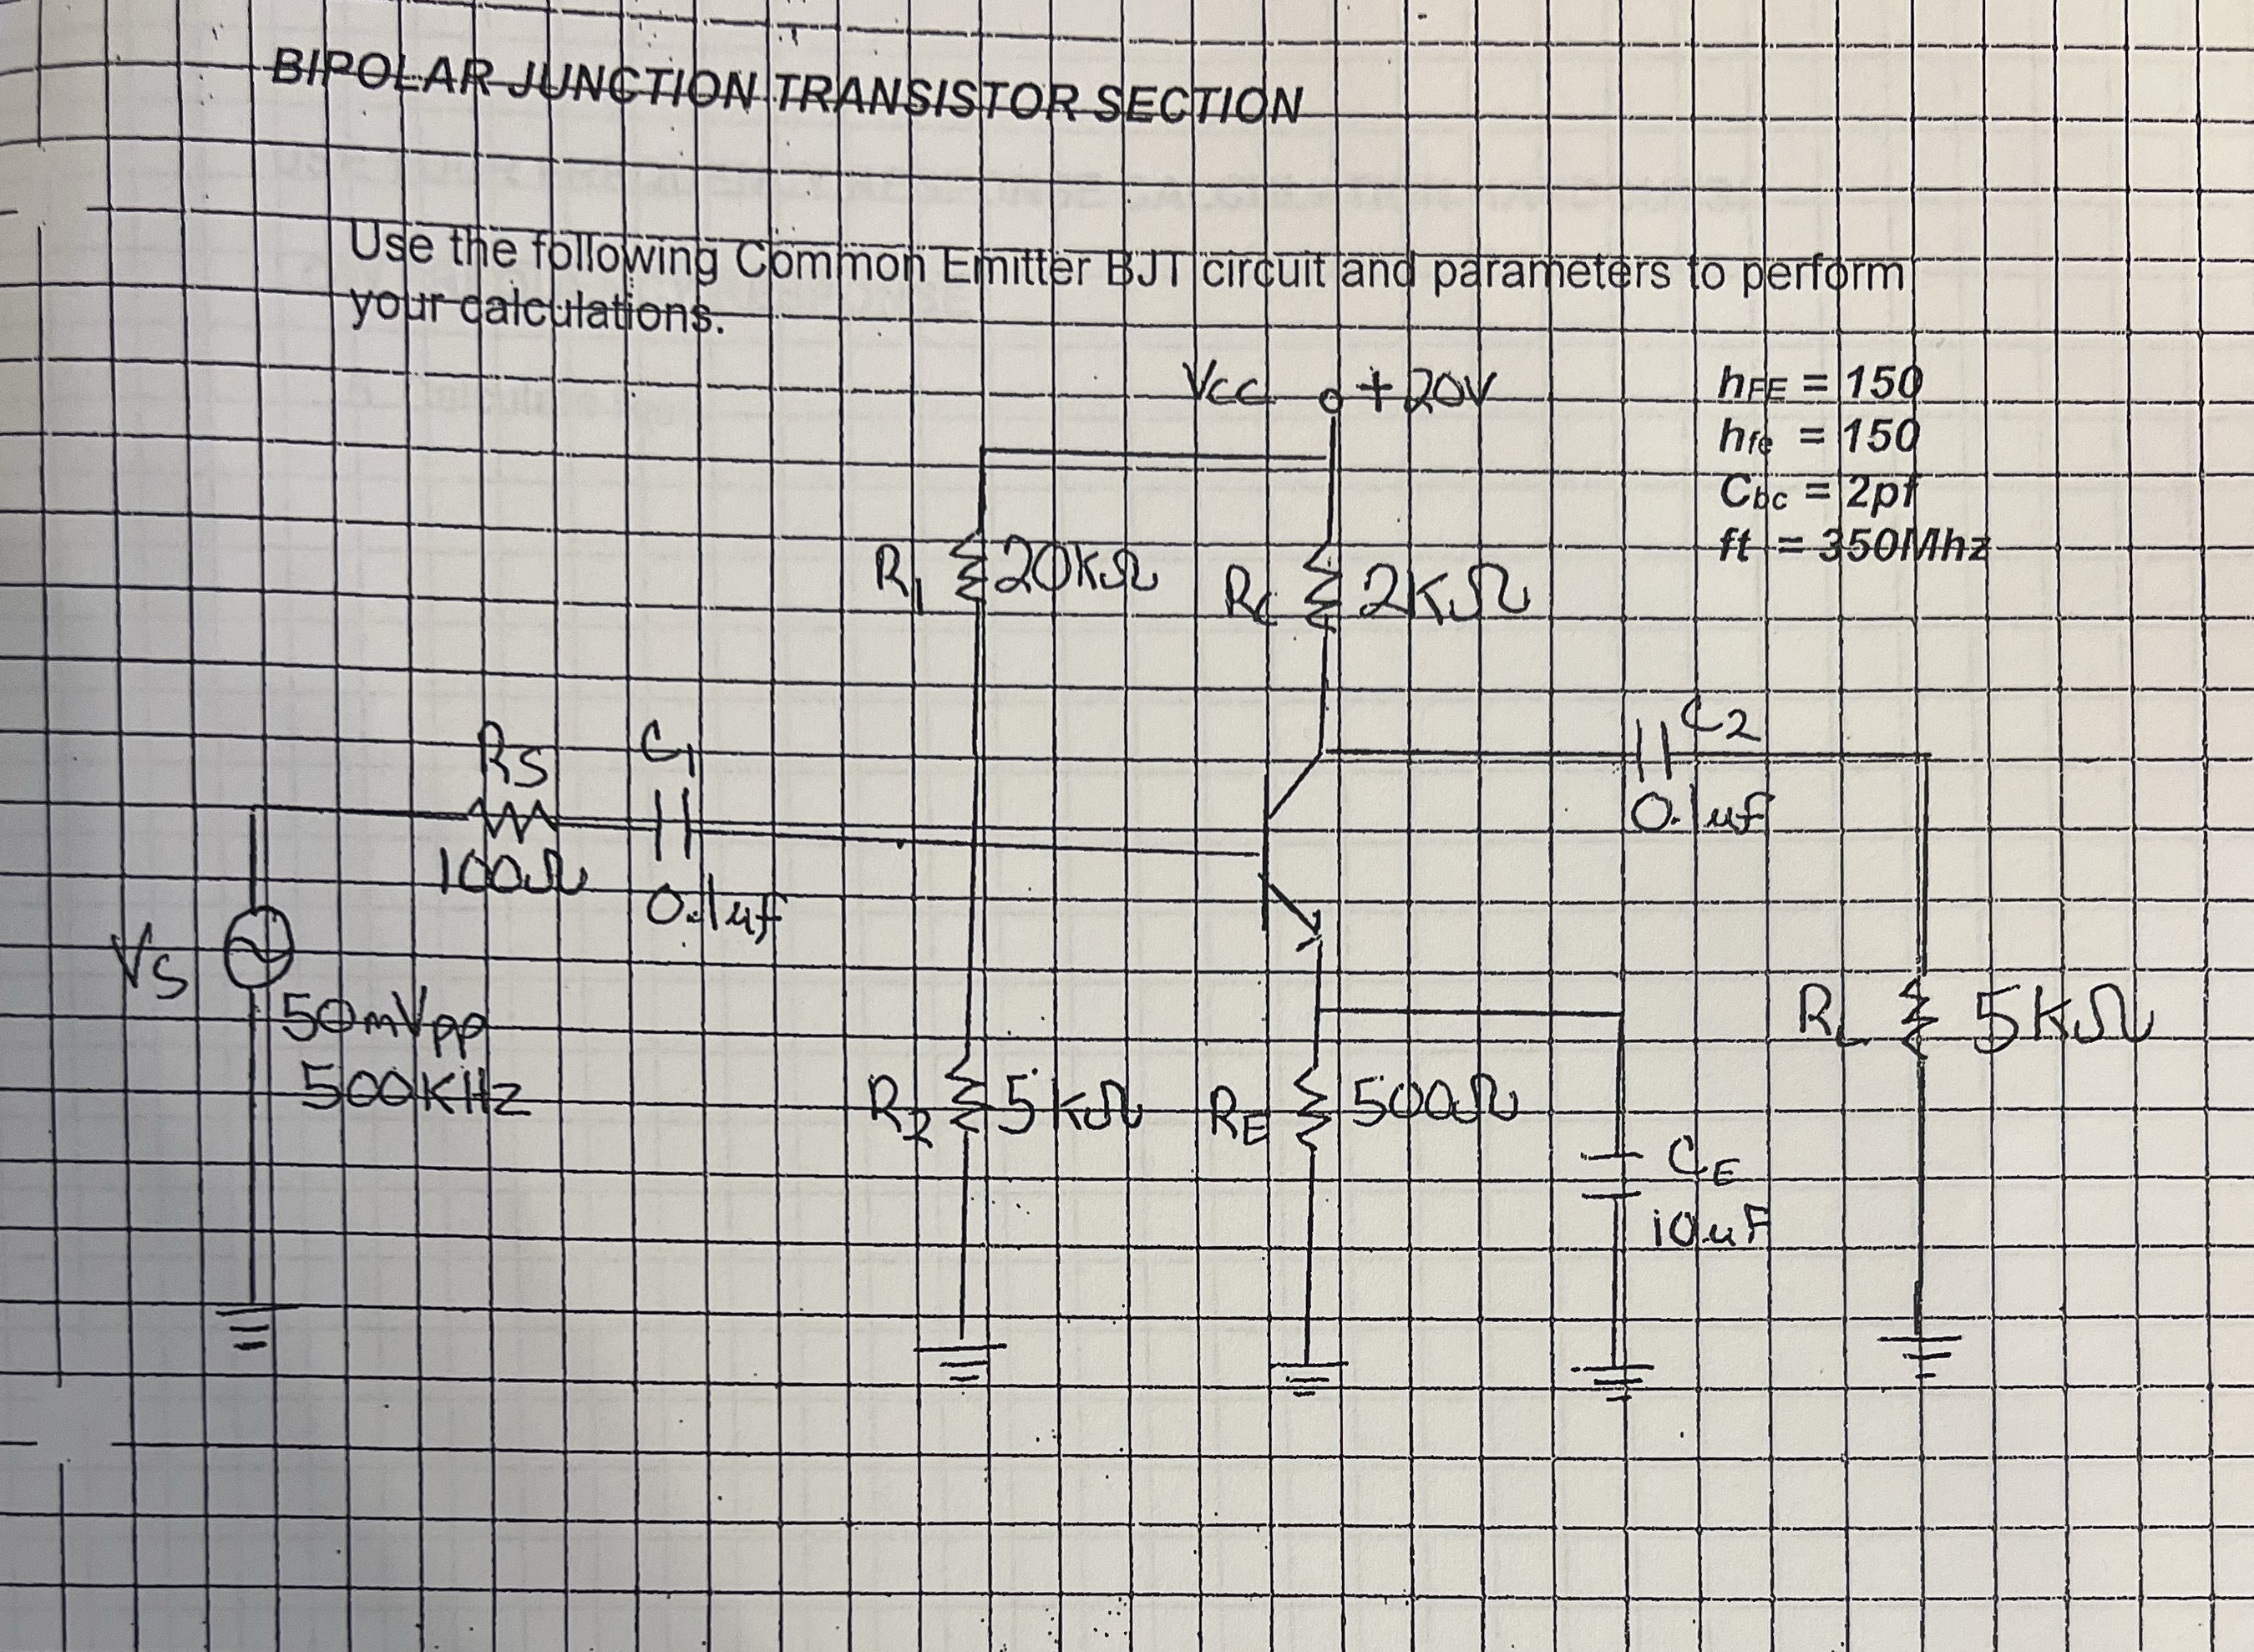 BIPOLAR JUNCTION TRANSISTOR SECTION
Use the following Common Emitter BJT circuit and parameters to perform
your calculations.
VCC +20V
hFE = 150
hfe = 150
Cbc = 2pf
ft = 350Mhz
R1 20KΩ
RC 2KΩ
RS
100Ω
C1
0.1uf
C2
0.1uf
VS
50mVpp
500KHz
R2 5KΩ
RE 500Ω
CE
10uF
RL 5KΩ